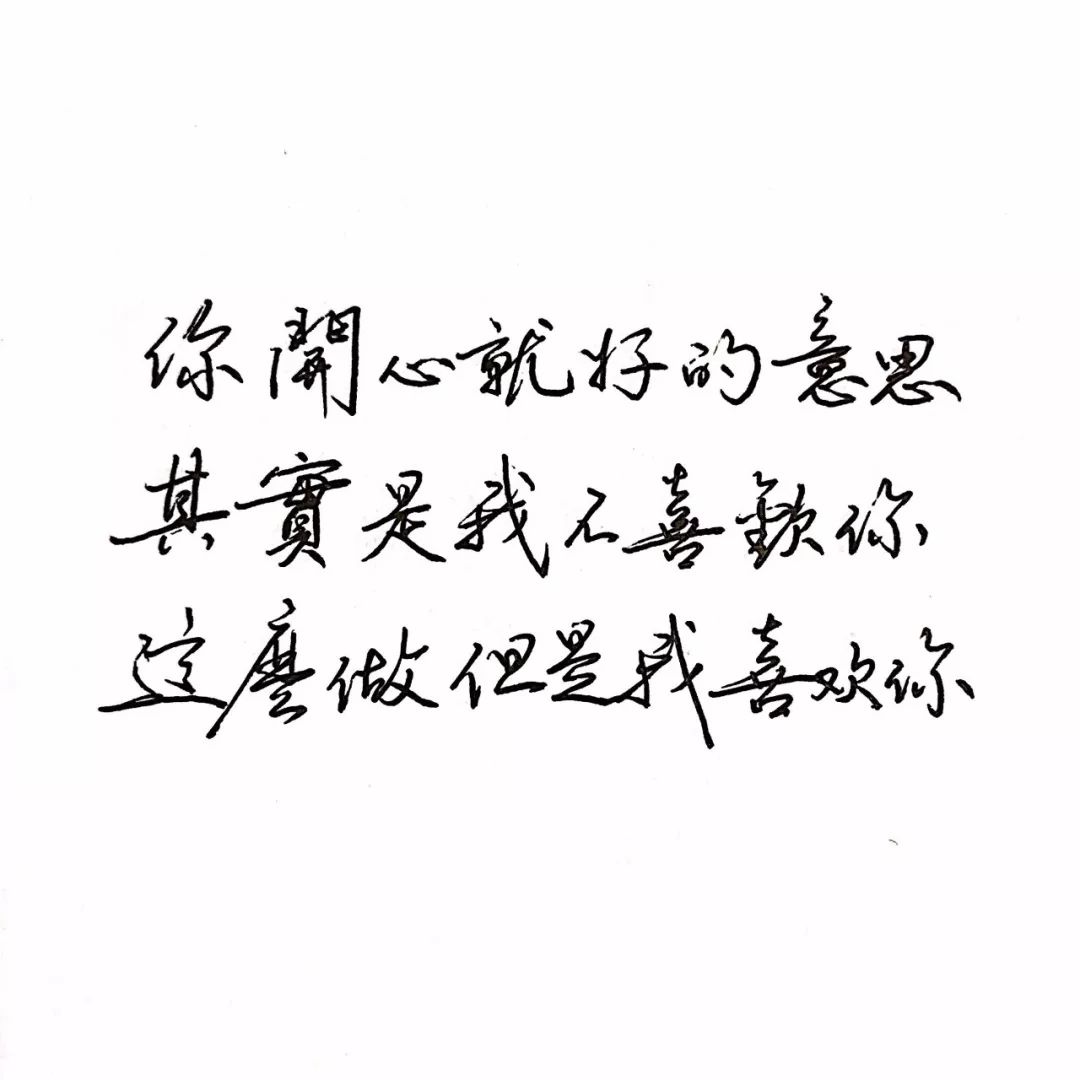 你開心就好的意思
其實是我不喜歡你
这麼做但是我喜欢你